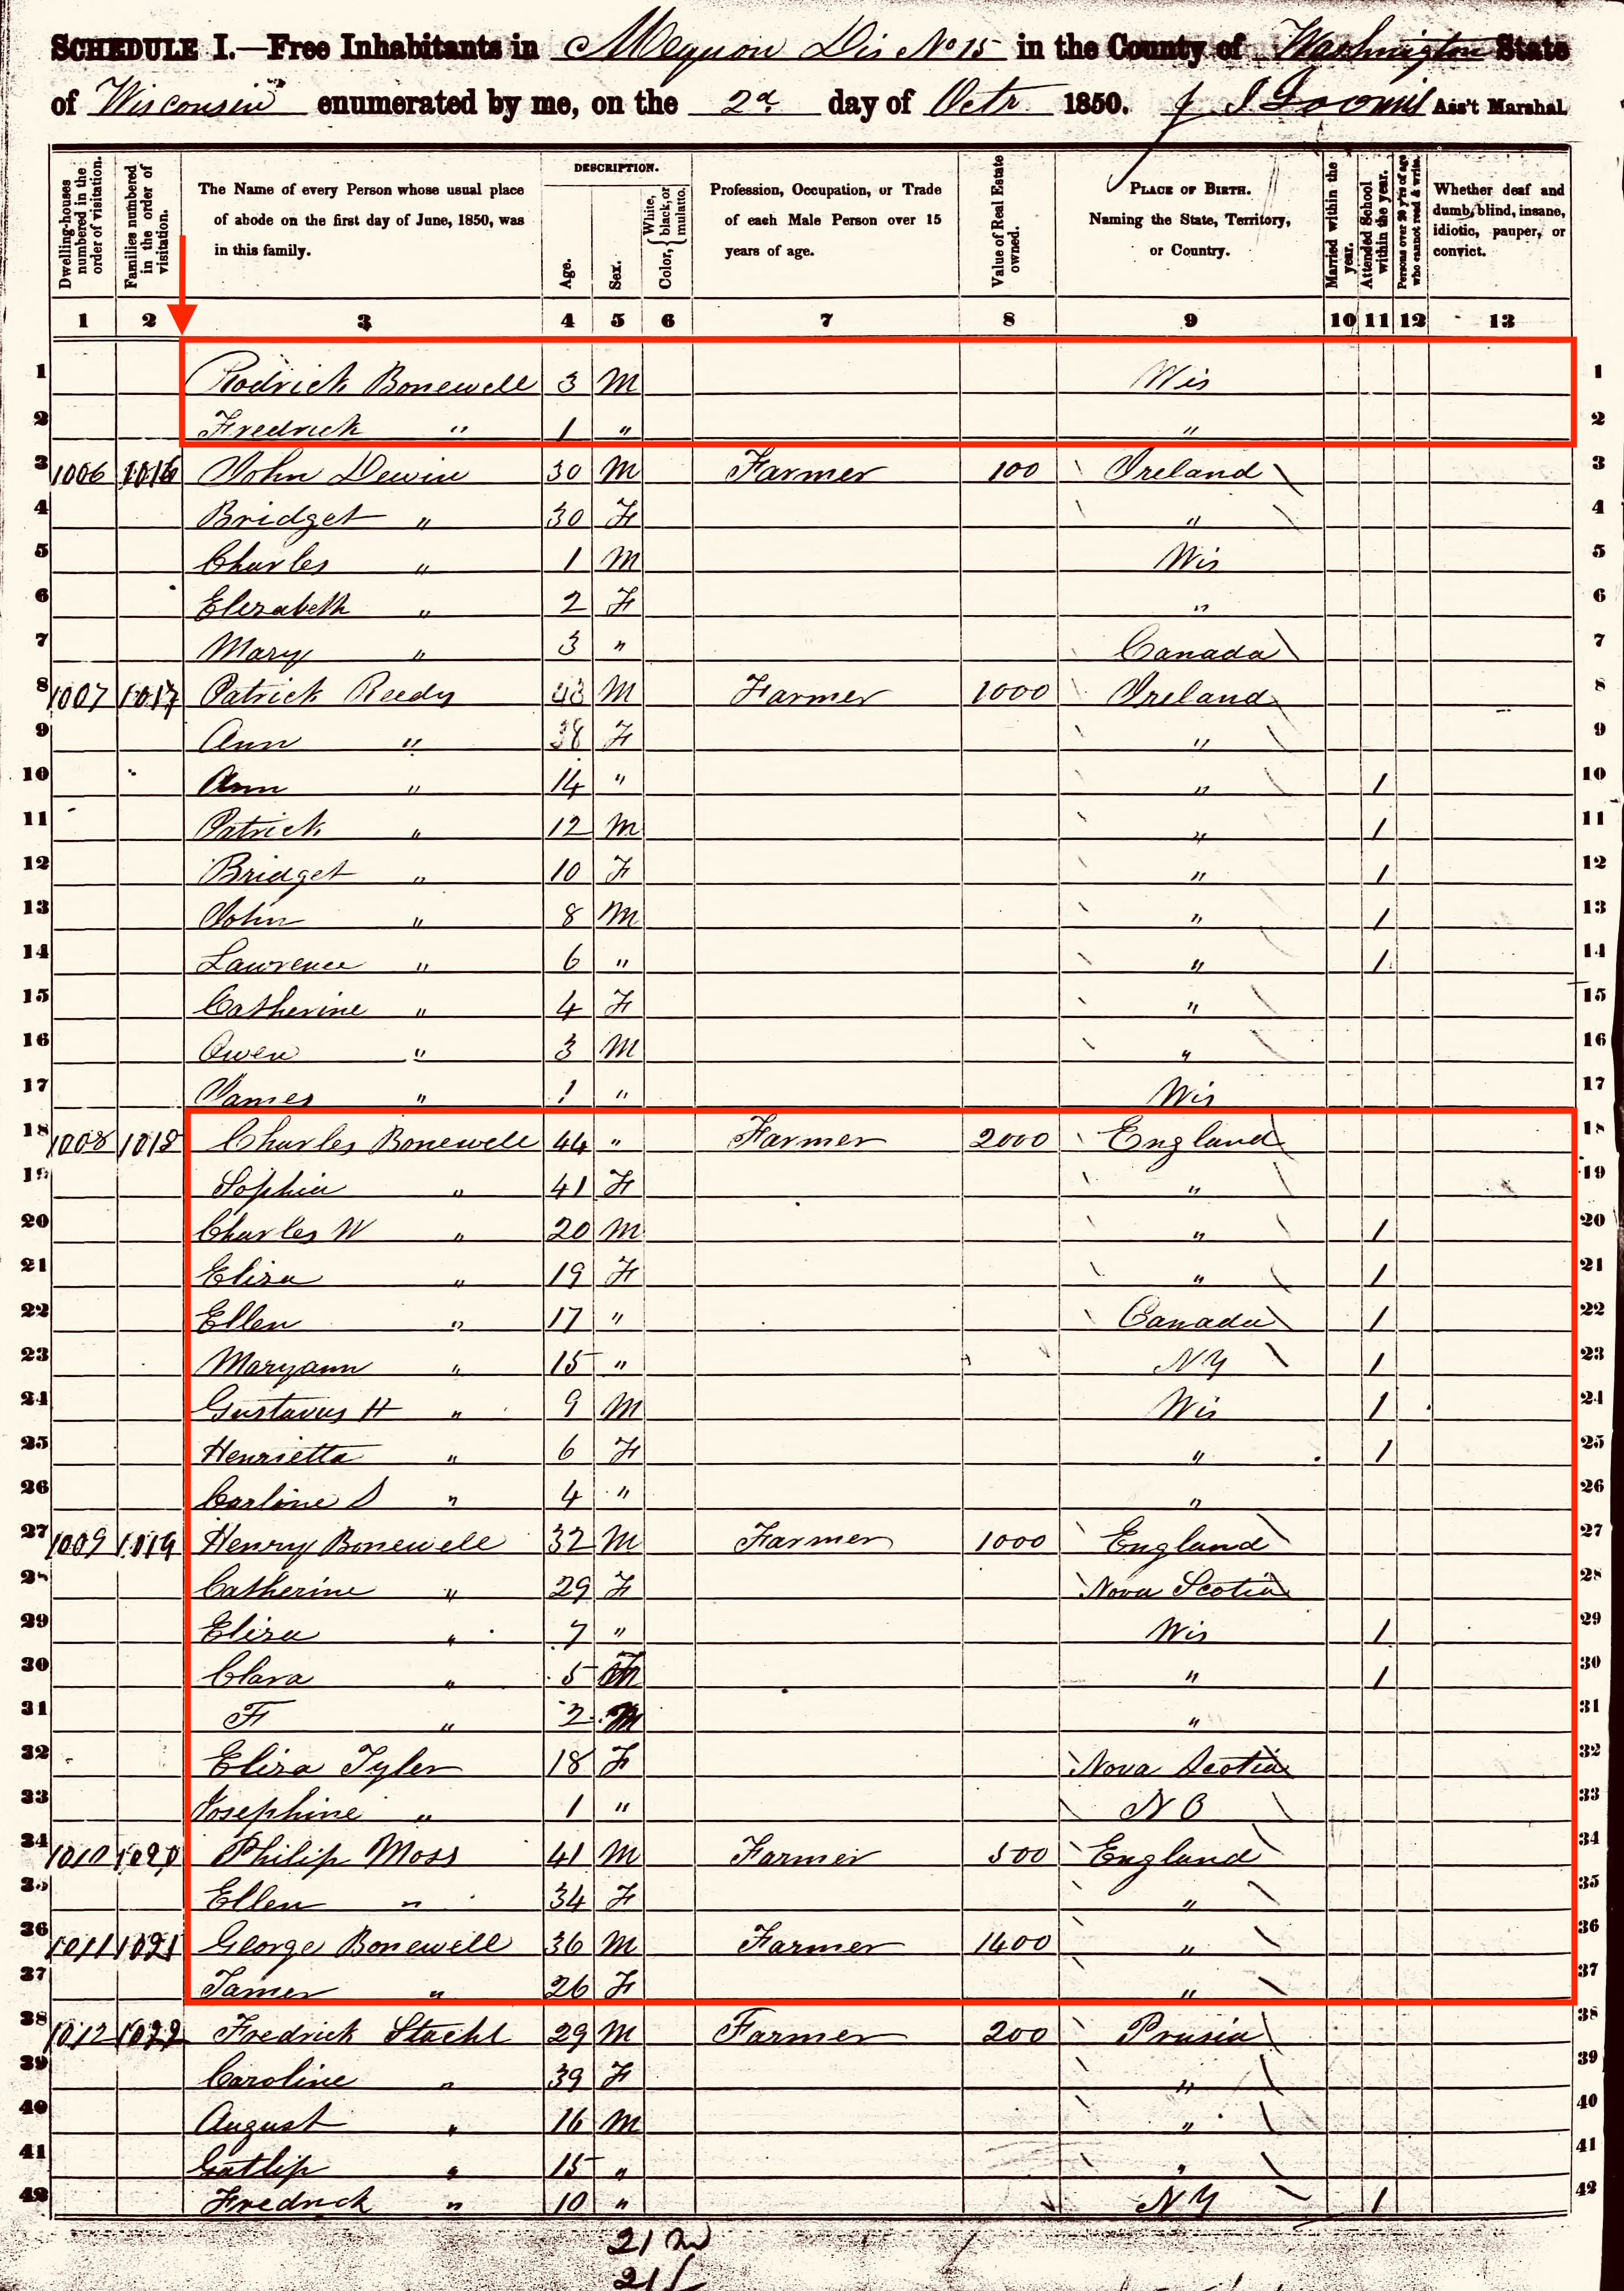 SCHEDULE I.—Free Inhabitants in Mequon Dis No 15 in the County of Washington State
of Wisconsin enumerated by me, on the 2d day of Octr 1850. J I Loomis Ass't Marshal.
Dwelling-houses numbered in the order of visitation.
Families numbered in the order of visitation.
The Name of every Person whose usual place of abode on the first day of June, 1850, was in this family.
DESCRIPTION.
Age.
Sex.
Color, { White, black, or mulatto.
Profession, Occupation, or Trade of each Male Person over 15 years of age.
Value of Real Estate owned.
PLACE OF BIRTH. Naming the State, Territory, or Country.
Married within the year.
Attended School within the year.
Persons over 20 y'rs of age who cannot read & write.
Whether deaf and dumb, blind, insane, idiotic, pauper, or convict.
1 2 3 4 5 6 7 8 9 10 11 12 13
1 Rodrick Bonewell 3 M Wis 1
2 Fredrick " 1 " " 2
3 1006 1016 John Dewin 30 M Farmer 100 Ireland 3
4 Bridget " 30 F " 4
5 Charles " 1 M Wis 5
6 Elizabeth " 2 F " 6
7 Mary " 3 " Canada 7
8 1007 1017 Patrick Reedy 43 M Farmer 1000 Ireland 8
9 Ann " 38 F " 9
10 Ann " 14 " " 1 10
11 Patrick " 12 M " 1 11
12 Bridget " 10 F " 1 12
13 John " 8 M " 1 13
14 Lawrence " 6 " " 1 14
15 Catherine " 4 F " 15
16 Owen " 3 M " 16
17 James " 1 " Wis 17
18 1008 1018 Charles Bonewell 44 " Farmer 2000 England 18
19 Sophia " 41 F " 19
20 Charles W " 20 M " 1 20
21 Eliza " 19 F " 1 21
22 Ellen " 17 " Canada 1 22
23 Maryann " 15 " NY 1 23
24 Gustavus H " 9 M Wis 1 24
25 Henrietta " 6 F " 1 25
26 Carline S " 4 " " 26
27 1009 1019 Henry Bonewell 32 M Farmer 1000 England 27
28 Catherine " 29 F Nova Scotia 28
29 Eliza " 7 " Wis 1 29
30 Clara " 5 " 1 30
31 F " 2 M " 31
32 Eliza Tyler 18 F Nova Scotia 32
33 Josephine " 1 " N B 33
34 1010 1020 Philip Moss 41 M Farmer 500 England 34
35 Ellen " 34 F " 35
36 1011 1021 George Bonewell 36 M Farmer 1400 " 36
37 Tamer " 26 F " 37
38 1012 1022 Fredrick Stachl 29 M Farmer 200 Prusia 38
39 Caroline " 39 F " 39
40 August " 16 M " 40
41 Gatlip " 15 " " 41
42 Fredrick " 10 " NY 1 42
21 m
21 f